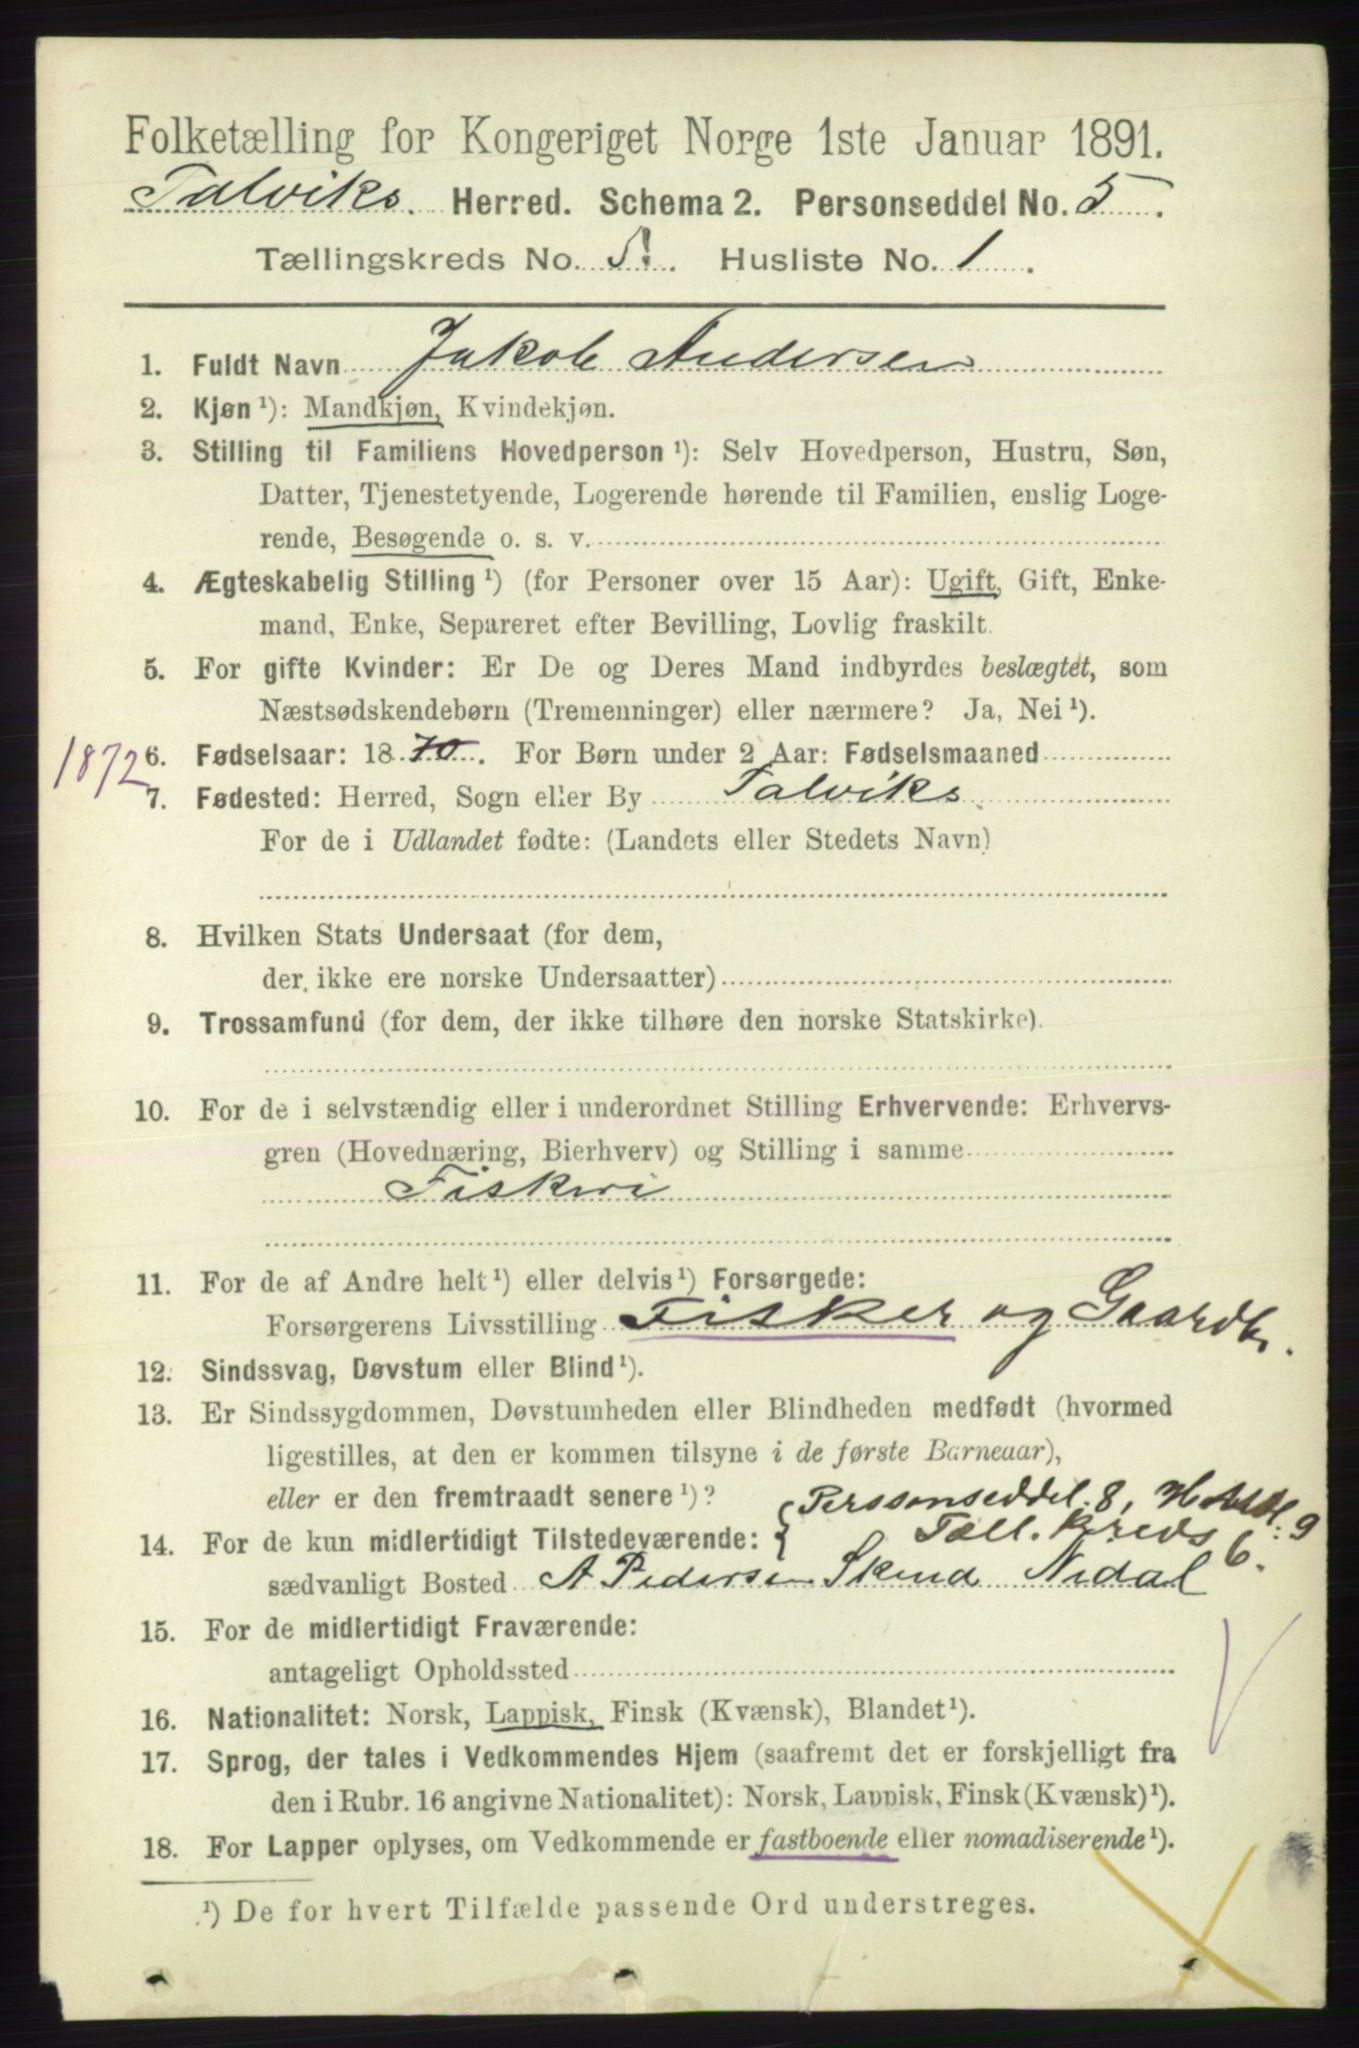 Folketælling for Kongeriget Norge 1ste Januar 1891.
Talviks. Herred. Schema 2. Personseddel No. 5.
Tællingskreds No. 5. Husliste No. 1.
1. Fuldt Navn Jakob Andersen
2. Kjøn ¹): Mandkjøn, Kvindekjøn.
3. Stilling til Familiens Hovedperson ¹): Selv Hovedperson, Hustru, Søn,
Datter, Tjenestetyende, Logerende hørende til Familien, enslig Loge-
rende, Besøgende o. s. v.
4. Ægteskabelig Stilling ¹) (for Personer over 15 Aar): Ugift, Gift, Enke-
mand, Enke, Separeret efter Bevilling, Lovlig fraskilt.
5. For gifte Kvinder: Er De og Deres Mand indbyrdes beslægtet, som
Næstsødskendebørn (Tremenninger) eller nærmere? Ja, Nei ¹).
1872 6. Fødselsaar: 1870. For Børn under 2 Aar: Fødselsmaaned
7. Fødested: Herred, Sogn eller By Talviks.
For de i Udlandet fødte: (Landets eller Stedets Navn)
8. Hvilken Stats Undersaat (for dem,
der ikke ere norske Undersaatter)
9. Trossamfund (for dem, der ikke tilhøre den norske Statskirke).
10. For de i selvstændig eller i underordnet Stilling Erhvervende: Erhvervs-
gren (Hovednæring, Bierhverv) og Stilling i samme
Fiskeri
11. For de af Andre helt ¹) eller delvis ¹) Forsørgede:
Forsørgerens Livsstilling Fisker og Gaardb.
12. Sindssvag, Døvstum eller Blind ¹).
13. Er Sindssygdommen, Døvstumheden eller Blindheden medfødt (hvormed
ligestilles, at den er kommen tilsyne i de første Barneaar),
eller er den fremtraadt senere ¹)? Perssonseddel. 8, 9
14. For de kun midlertidigt Tilstedeværende: { Tæll. kreds 6.
sædvanligt Bosted A Pedersen Nidal
15. For de midlertidigt Fraværende:
antageligt Opholdssted
16. Nationalitet: Norsk, Lappisk, Finsk (Kvænsk), Blandet ¹).
17. Sprog, der tales i Vedkommendes Hjem (saafremt det er forskjelligt fra
den i Rubr. 16 angivne Nationalitet): Norsk, Lappisk, Finsk (Kvænsk) ¹).
18. For Lapper oplyses, om Vedkommende er fastboende eller nomadiserende ¹).
¹) De for hvert Tilfælde passende Ord understreges.